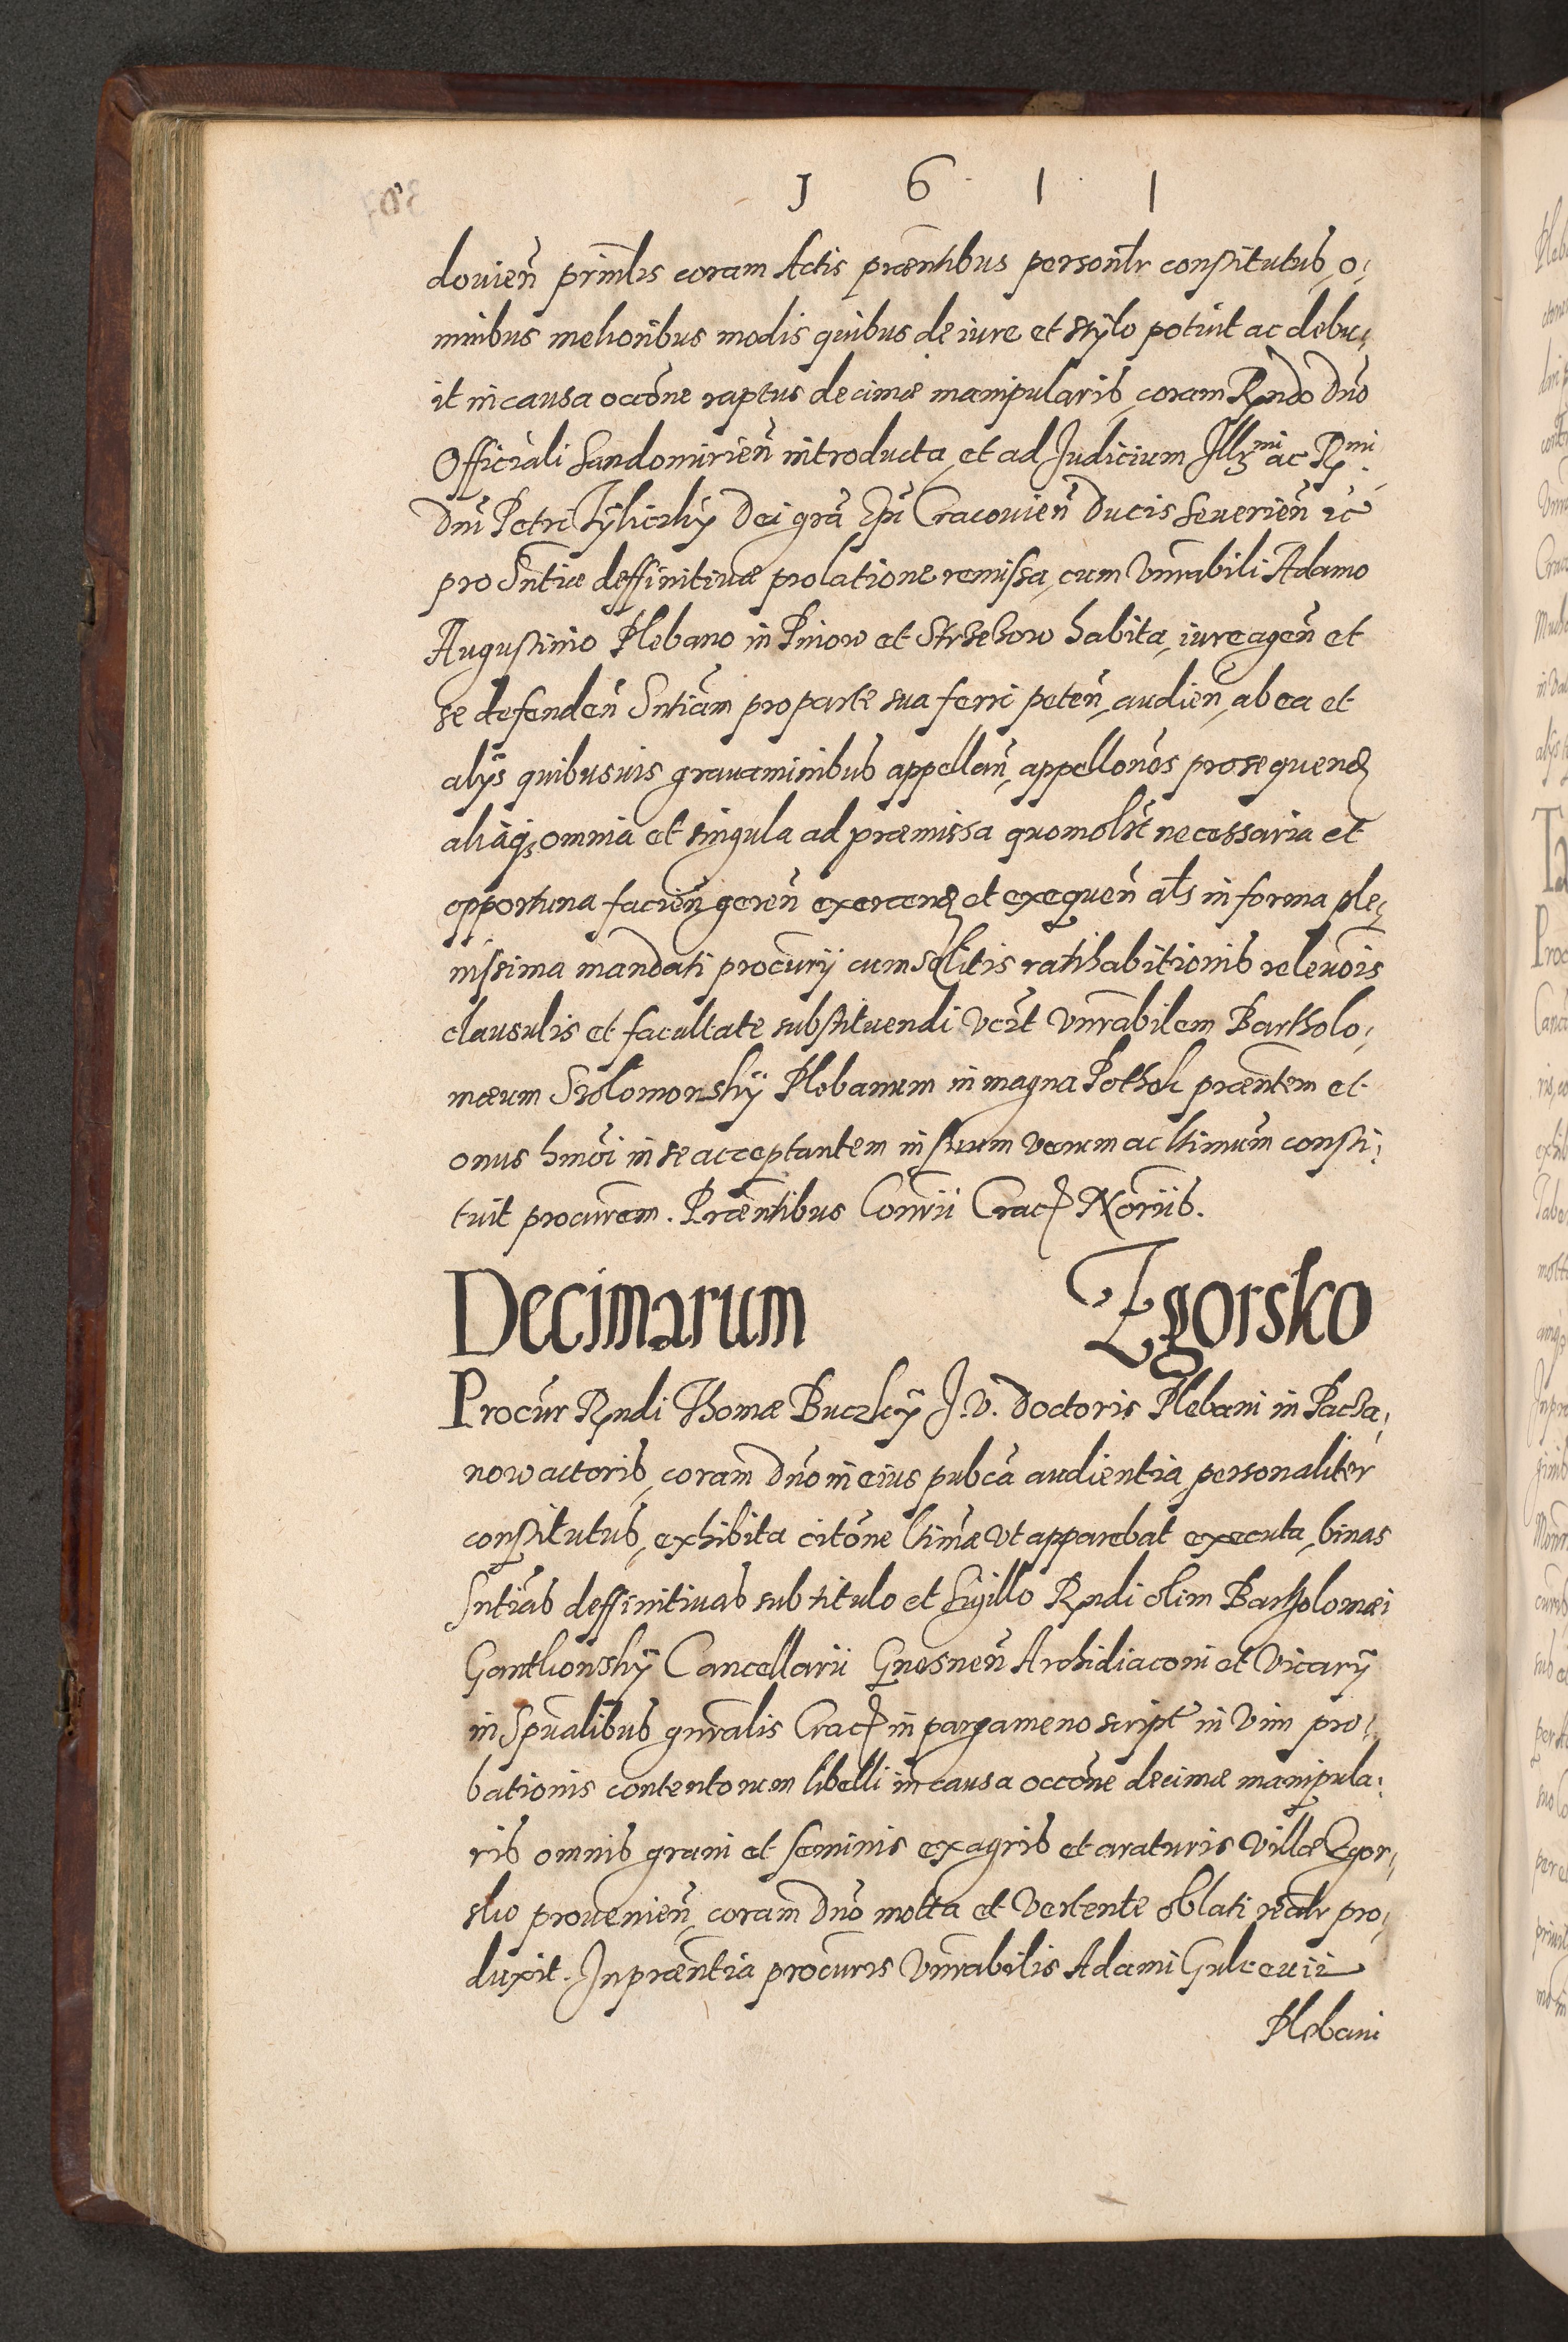 J 6 1 1
douien̄ primlis coram Actis præntibus personlr constitutus, o,
mnibus melioribus modis quibus de iure et stylo potuit ac debu,
it in causa occōne raptus decimæ manipularis, coram Rndo Dno
Officiali Sandomirien̄ introducta, et ad Judicium Illmi ac Rmi.
Dni Petri Tyliczky Dei grā Epi Cracouien̄ Ducis Seuerien̄ etc
pro Sntiæ deffinitiuæ prolatione remissa, cum Vnrabili Adamo
Augustinio Plebano in Pniow et habita, iure agen̄ et
se defenden̄ Sntiam pro parte sua ferri peten̄, audien̄, ab ea et
alys quibusuis grauaminibus appellan̄, appellones prosequend
aliaq; omnia et singula ad præmissa quomolt necessaria et
opportuna facien̄ geren̄ exercend et exequen̄ als in forma ple,
nissima mandati procurij cum solitis ratihabitionis releuois
clausulis et facultate substituendi Vczt Vnrabilem Bartholo,
mæum Szolomonsky Plebanum in magna Pothok præntem et
onus hmoi in se acceptantem in suum verum ac ltimum consti,
tuit procurem. Præntibus Conrii Crac Noriis.
Decimarum Zgorsko
Procur Rndi Thomæ Buczky J. V. Doctoris Plebani in Pacza,
now actoris, coram Dno in eius pubca audientia, personaliter
constitutus, exhibita citone ltimæ Vt apparebat executa, binas
Sntias deffinitiuas sub titulo et Sigillo Rndi olim Bartholomæi
Gantkonsky Cancellarii Gnesnen̄ Archidiaconi et Vicarij
in Spualibus gnralis Crac in pargameno script in Vim pro,
bationis contentorum libelli in causa occōne decimæ manipula,
ris omnis grani et seminis ex agris et araturis Villæ Zgor,
sko prouenien̄, coram Dno motta et Vertente oblati realr pro,
duxit. In præntia procuris Vnrabilis Adami
Plebani